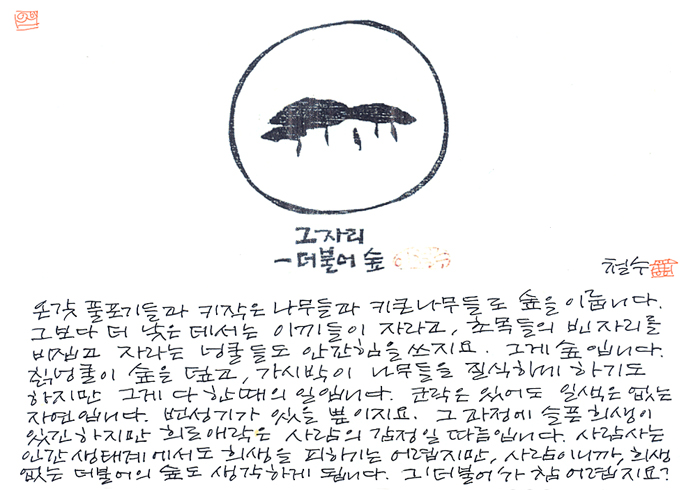 그 자리
- 더불어 숲
철수
온갖 풀포기들과 키작은 나무들과 키큰나무들로 숲을 이룹니다.
그보다 더 낮은 데서는 이끼들이 자라고, 초목들의 빈 자리를
비집고 자라는 넝쿨들도 안간힘을 쓰지요. 그게 숲입니다.
칡넝쿨이 숲을 덮고, 가시박이 나무들을 질식하게 하기도
하지만 그게 다 한때의 일입니다. 군락은 있어도 일색은 없는
자연입니다. 번성기가 있을 뿐이지요. 그 과정에 슬픈 희생이
있긴 하지만 희로애락은 사람의 감정일 따름입니다. 사람사는
인간 생태계에서도 희생을 피하기는 어렵지만, 사람이니까, 희생
없는 더불어의 숲도 생각하게 됩니다. 그 '더불어'가 참 어렵지요?